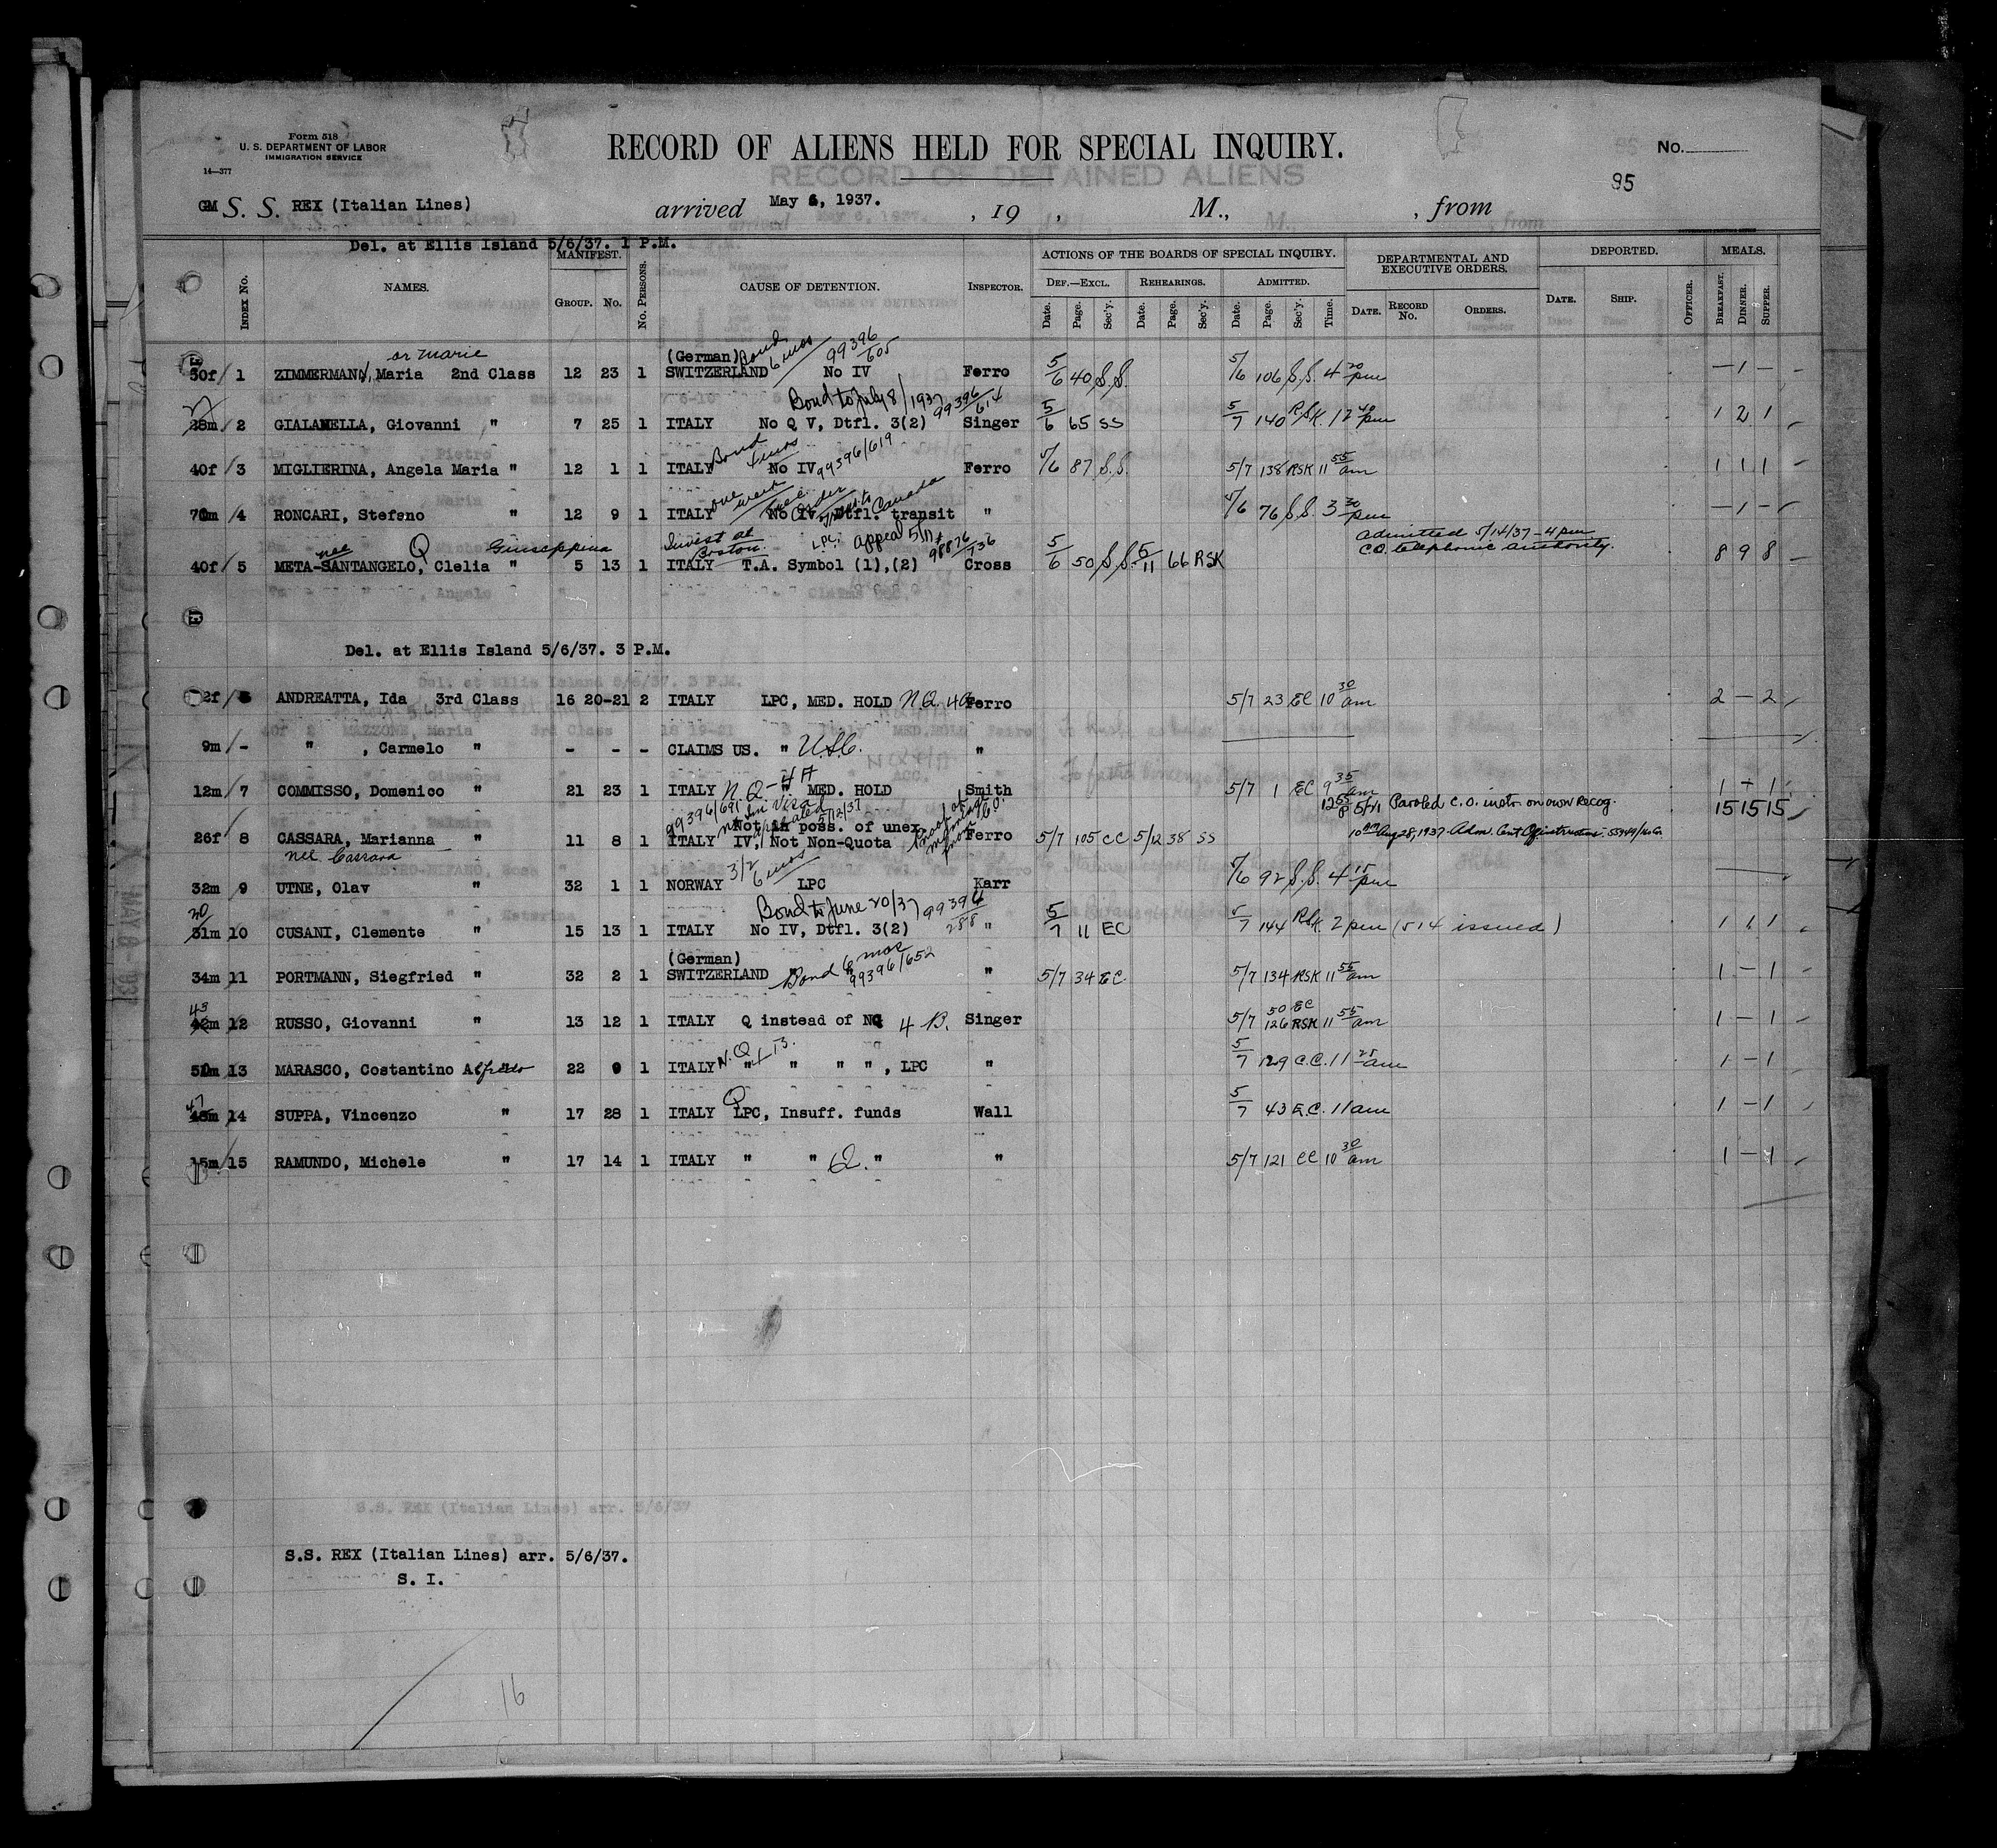 Form 518
U. S. DEPARTMENT OF LABOR
IMMIGRATION SERVICE
14—377
RECORD OF ALIENS HELD FOR SPECIAL INQUIRY.
No.
RECORD OF DETAINED ALIENS
95
GM S. S. REX (Italian Lines) arrived May 6, 1937. , 19 , M., , from
Del. at Ellis Island 5/6/37. 1 P.M.
INDEX No. NAMES. MANIFEST. GROUP. No. No. PERSONS. CAUSE OF DETENTION. INSPECTOR. ACTIONS OF THE BOARDS OF SPECIAL INQUIRY. DEPARTMENTAL AND EXECUTIVE ORDERS. DEPORTED. MEALS.
DEF.—EXCL. REHEARINGS. ADMITTED.
Date. Page. Sec'y. Date. Page. Sec'y. Date. Page. Sec'y. Time. DATE. RECORD No. ORDERS. DATE. SHIP. OFFICER. BREAKFAST. DINNER. SUPPER.
or Marie (German) Bond 6 mos 99396/605
30f/ 1 ZIMMERMANN, Maria 2nd Class 12 23 1 SWITZERLAND No IV Ferro 5/6 40 S.S. 5/6 106 S.S. 4 20 pm — 1 —
Bond to July 8/1937 99396/614
28m/ 2 GIALANELLA, Giovanni " 7 25 1 ITALY No Q V, Dtfl. 3(2) Singer 5/6 65 SS 5/7 140 RSK. 12 40 pm 1 2 1
Bond 4 mos 99396/619
40f/ 3 MIGLIERINA, Angela Maria " 12 1 1 ITALY No IV Ferro 5/6 87 S.S. 5/7 138 RSK 11 55 am 1 1 1
one week Canada
70m/ 4 RONCARI, Stefano " 12 9 1 ITALY No IV, Dtfl. transit " 5/6 76 S.S. 3 30 pm — 1 —
nee Q Giuseppina Invest at Boston. LPC. appeal 5/11 98876/736 admitted 5/14/37 - 4 pm C.O. telephonic authority.
40f/ 5 META-SANTANGELO, Clelia " 5 13 1 ITALY T.A. Symbol (1),(2) Cross 5/6 50 S.S. 5/11 66 RSK 8 9 8
Del. at Ellis Island 5/6/37. 3 P.M.
2f/ 6 ANDREATTA, Ida 3rd Class 16 20-21 2 ITALY LPC, MED. HOLD N.Q. 4a Ferro 5/7 23 EC 10 30 am 2 — 2
9m/ - " , Carmelo " - - - CLAIMS US. " U.S.C. "
12m/ 7 COMMISSO, Domenico " 21 23 1 ITALY N.Q - 4A " MED. HOLD Smith 5/7 1 EC 9 35 am 1 + 1
99396/691 no Imi Visa appealed 5/12/37 Proof of marriage 5/21 Paroled C.O. instr. on own recog. 15 15 15
Not in poss. of unex.
26f/ 8 CASSARA, Marianna " 11 8 1 ITALY IV, Not Non-Quota Ferro 5/7 105 CC 5/12 38 SS 10 am Aug 28, 1937 Adm.
nee Cassara
3/2 6 mos
32m/ 9 UTNE, Olav " 32 1 1 NORWAY LPC Karr 5/6 92 S.S. 4 15 pm
Bond to June 20/37 99394/288
20 31m/ 10 CUSANI, Clemente " 15 13 1 ITALY No IV, Dtfl. 3(2) " 5/7 11 EC 5/7 144 RSK. 2 pm (514 issued) 1 1 1
(German) Bond 6 mos 99396/652
34m/ 11 PORTMANN, Siegfried " 32 2 1 SWITZERLAND " " 5/7 34 EC. 5/7 134 RSK 11 55 am 1 — 1
43 50 EC
42m/ 12 RUSSO, Giovanni " 13 12 1 ITALY Q instead of NQ 4 B. Singer 5/7 126 RSK 11 55 am 1 — 1
N.Q
50m/ 13 MARASCO, Costantino Alfredo " 22 9 1 ITALY " " " " , LPC " 5/7 129 C.C. 11 25 am 1 — 1
47 Q
48m/ 14 SUPPA, Vincenzo " 17 28 1 ITALY LPC, Insuff. funds Wall 5/7 43 E.C. 11 am 1 — 1
15m/ 15 RAMUNDO, Michele " 17 14 1 ITALY " " Q. " " 5/7 121 CC 10 30 am 1 — 1
S.S. REX (Italian Lines) arr. 5/6/37
S.S. REX (Italian Lines) arr. 5/6/37.
S. I.
16